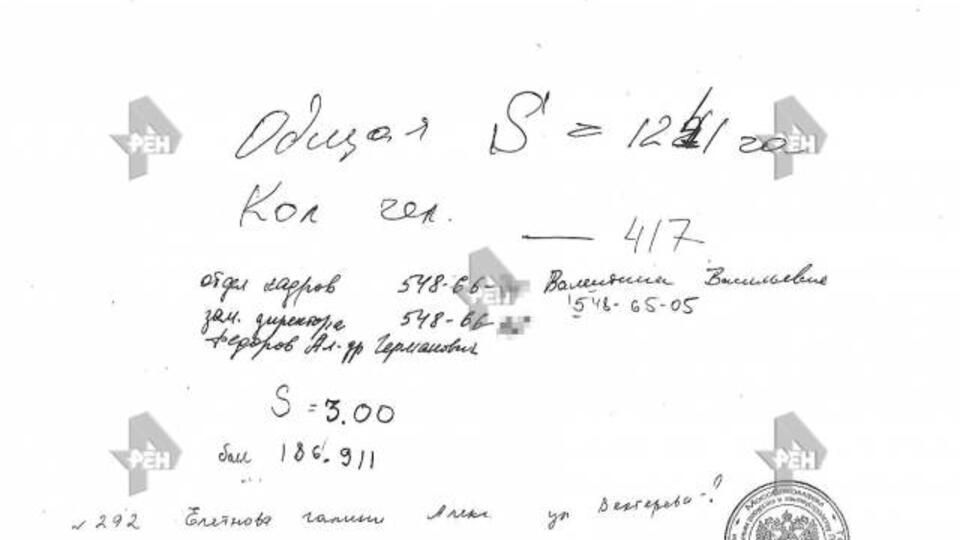 Общая S = 1241 га
Кол чел.
— 417
отдел кадров 548-66- Валентина Васильевна
зам. директора 548-66- 548-65-05
Федоров Ал-др Германович
S = 3.00
бал 186.911
№ 292 Елетнова Галина Алекс ул Бехтерева-?
РЕН
РЕН
РЕН
РЕН
РЕН